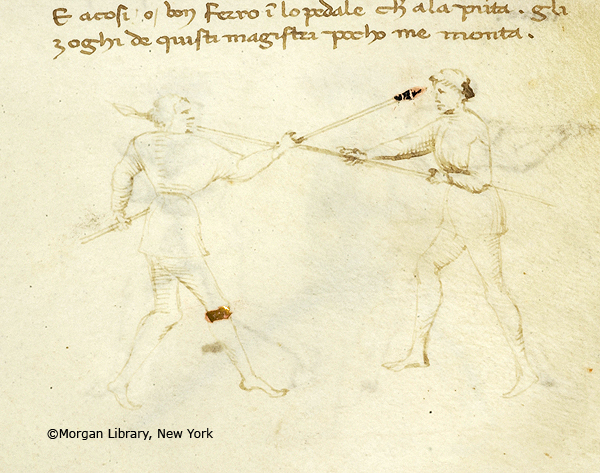 E acosi o bon Ferro ī lo pedale ch̄ a la pūta. gli
zoghi de quisti magistri pocho me monta.
©Morgan Library, New York